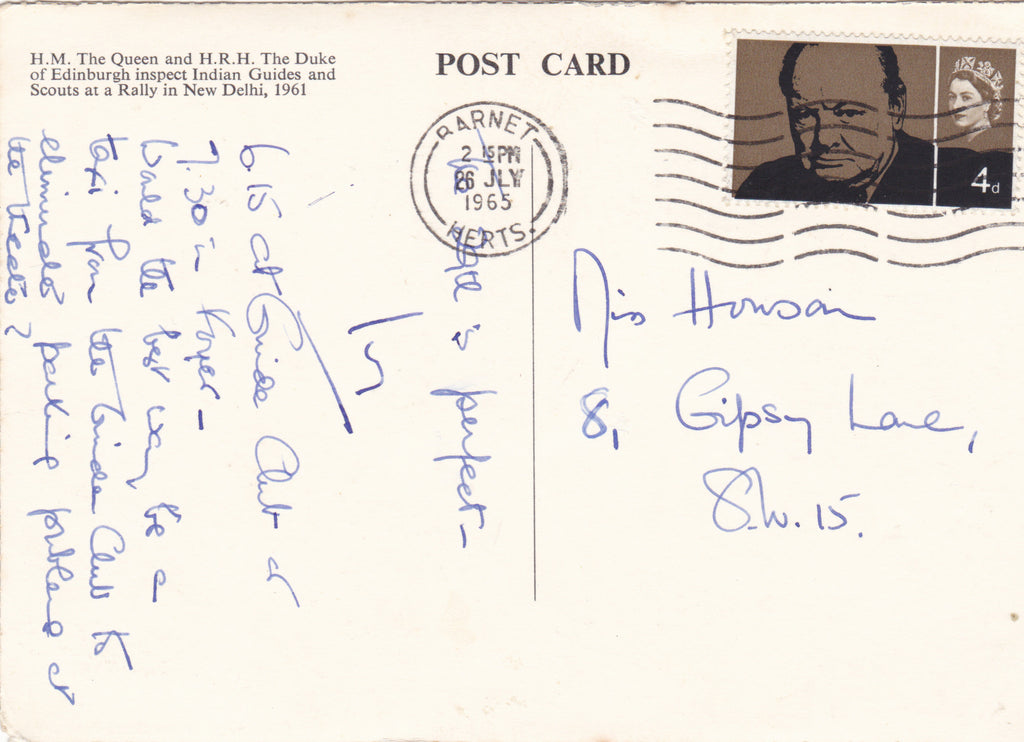 H.M. The Queen and H.R.H. The Duke
of Edinburgh inspect Indian Guides and
Scouts at a Rally in New Delhi, 1961
POST CARD
BARNET
2 15 PM
26 JLY
1965
HERTS.
4d
is perfect —
6.15 at Guide Club or
7.30 in Foyer —
Would the best way be a
taxi from the Guide Club to
eliminate parking problems at
the theatre?
Miss Howson
8, Gipsy Lane,
S.W. 15.